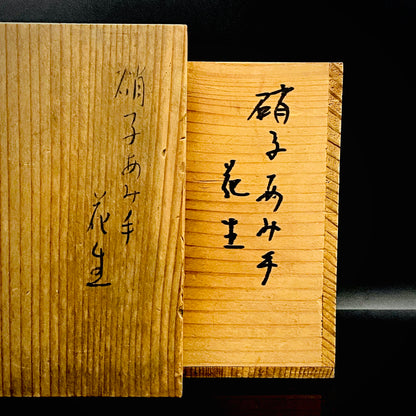 硝子あみ手
花生
硝子あみ手
花生